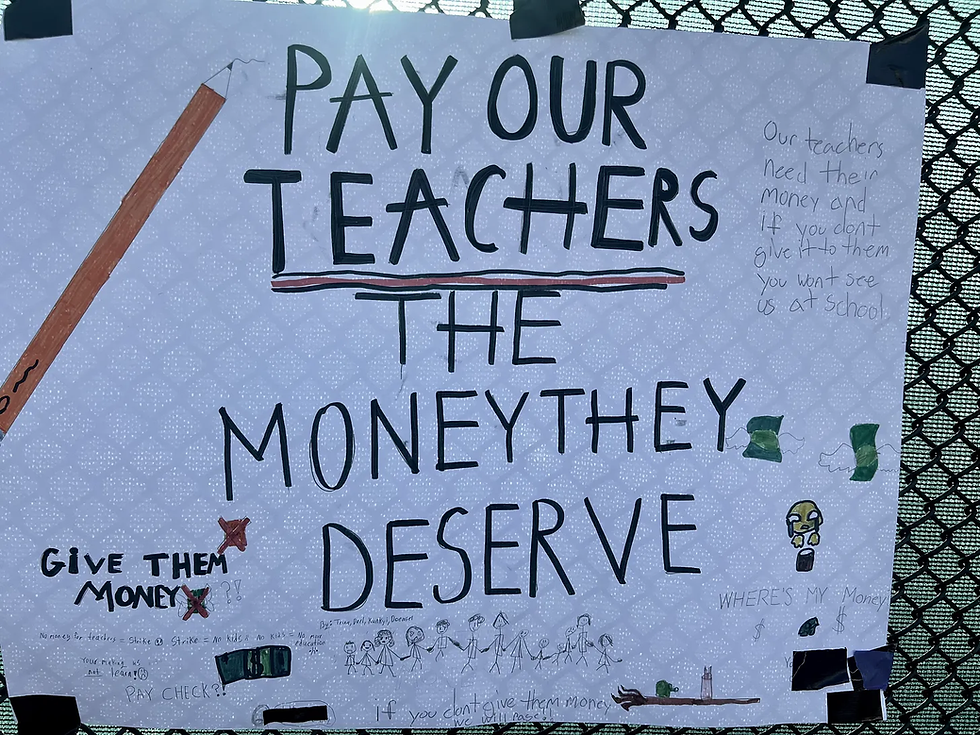 PAY OUR
TEACHERS
THE
MONEY THEY
DESERVE
Our teachers
need their
money and
if you dont
give it to them
you wont see
us at school
GIVE THEM
MONEY ?!
WHERE'S MY Money
$ $
No money for teachers = Strike Strike = No kids No kids = No more
education
Your making us
not learn!
PAY CHECK?!
if you dont give them money
we will